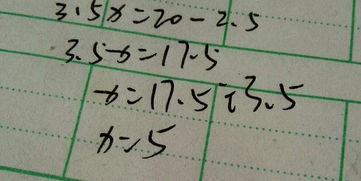 3.5x=20-2.5
3.5x=17.5
x=17.5÷3.5
x=5